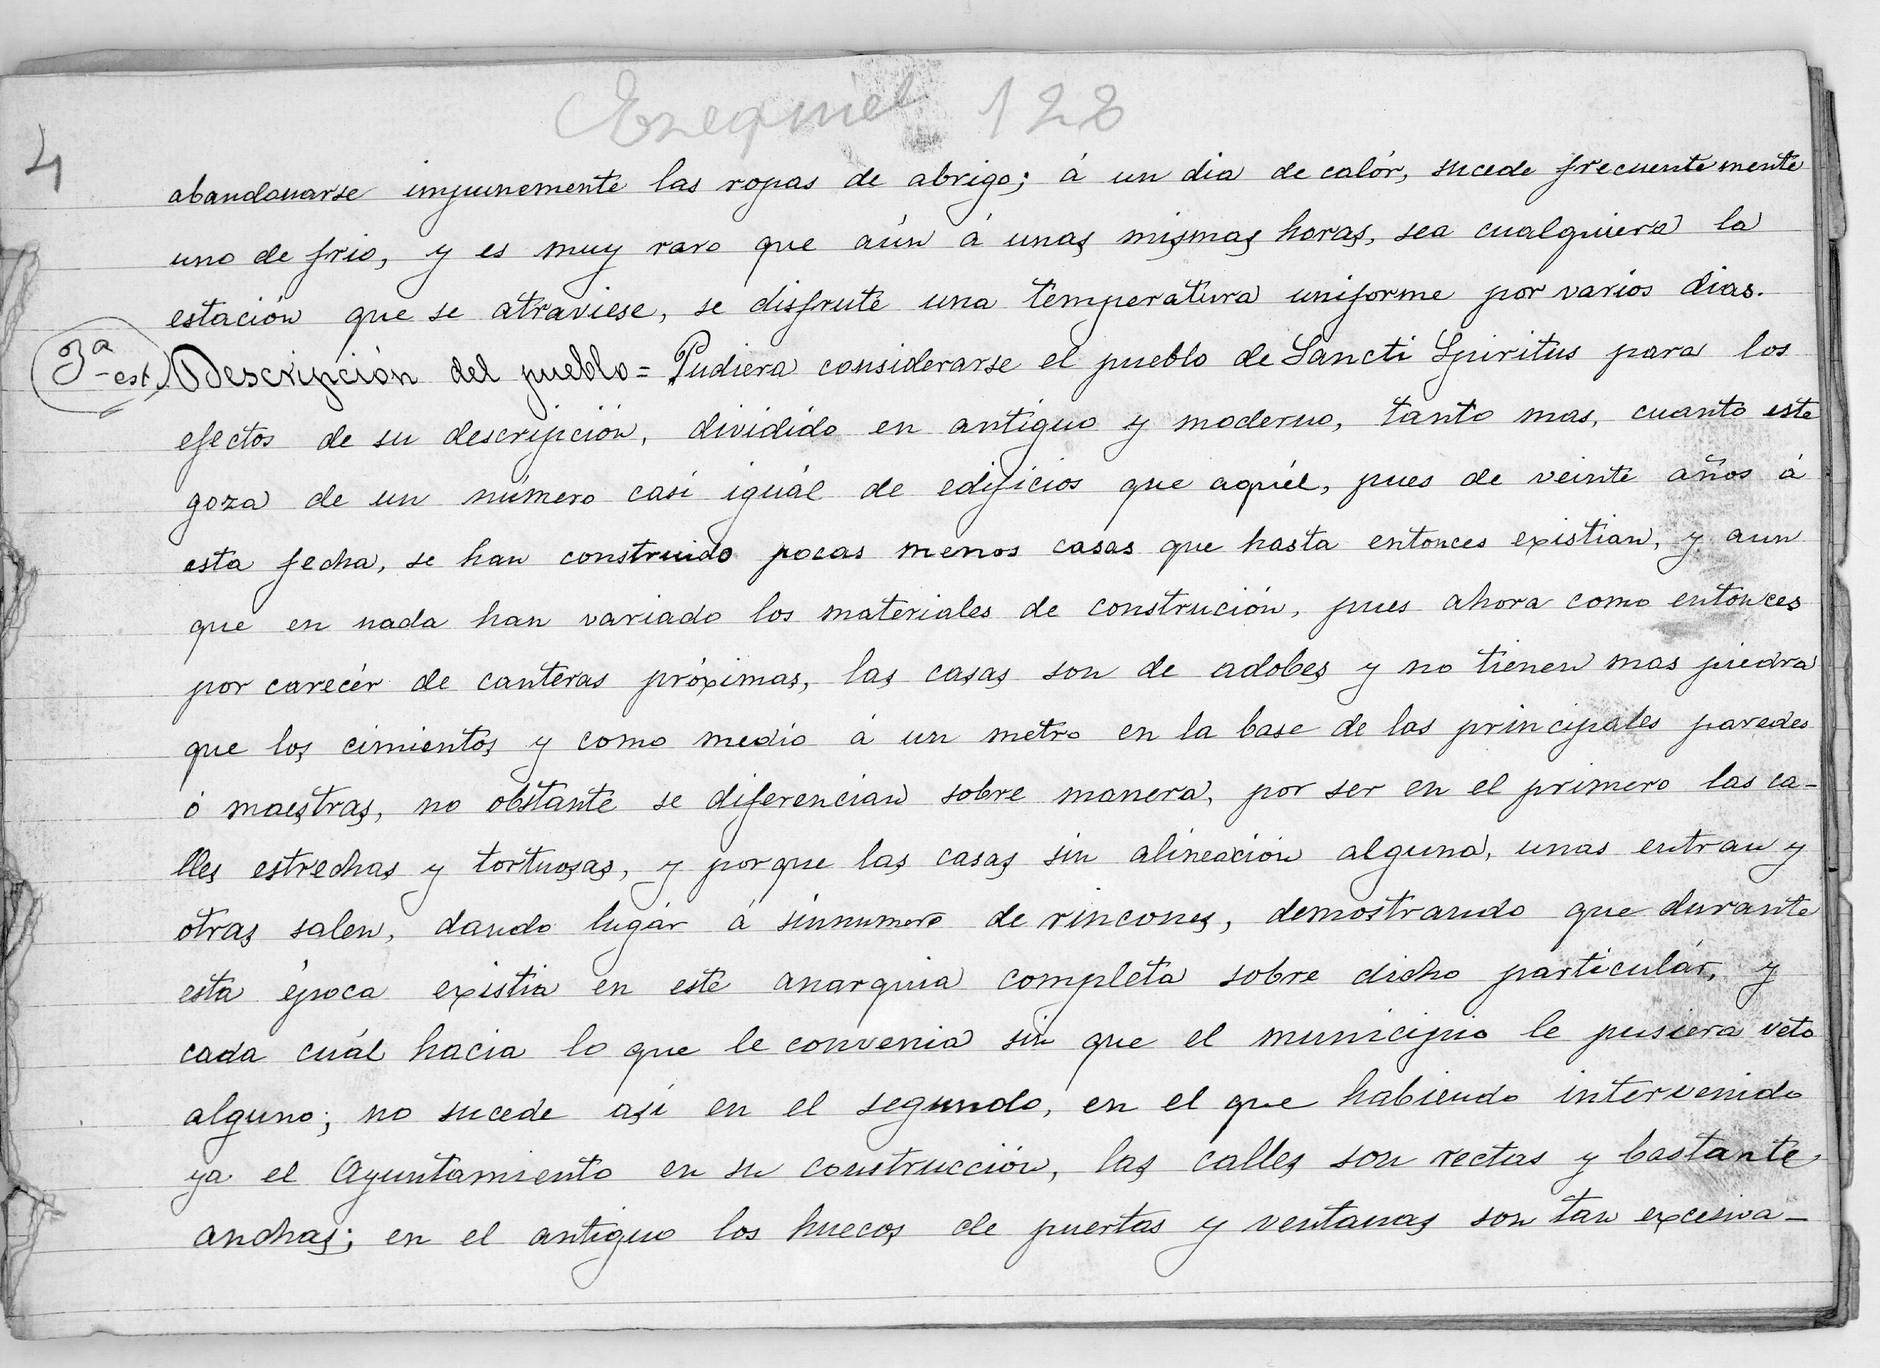 Ezequiel 128
4
abandonarse impunemente las ropas de abrigo; á un dia de calór, sucede frecuentemente
uno de frio, y es muy raro que aún á unas mismas horas, sea cualquiera la
estación que se atraviese, se disfrute una temperatura uniforme por varios dias.
3ª est. Descripción del pueblo = Pudiera considerarse el pueblo de Sancti Spiritus para los
efectos de su descripción, dividido en antiguo y moderno, tanto mas, cuanto este
goza de un número casi iguál de edificios que aquél, pues de veinte años á
esta fecha, se han construido pocas menos casas que hasta entonces existian, y aun
que en nada han variado los materiales de construción, pues ahora como entonces
por carecér de canteras próximas, las casas son de adobes y no tienen mas piedra
que los cimientos y como medio á un metro en la base de las principales paredes
ó maestras, no obstante se diferencian sobre manera, por ser en el primero las ca-
lles estrechas y tortuosas, y porque las casas sin alineación alguna, unas entran y
otras salen, dando lugár á sinnumero de rincones, demostrando que durante
esta época existia en este anarquia completa sobre dicho particulár, y
cada cuál hacia lo que le convenia sin que el municipio le pusiera veto
alguno; no sucede asi en el segundo, en el que habiendo intervenido
ya el Ayuntamiento en su construcción, las calles son rectas y bastante
anchas; en el antiguo los huecos de puertas y ventanas son tan excesiva-